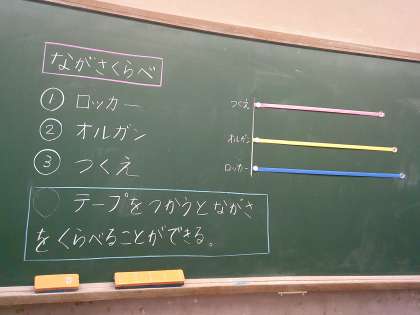 ながさくらべ
① ロッカー
② オルガン
③ つくえ
テープをつかうとながさ
をくらべることができる。
つくえ
オルガン
ロッカー